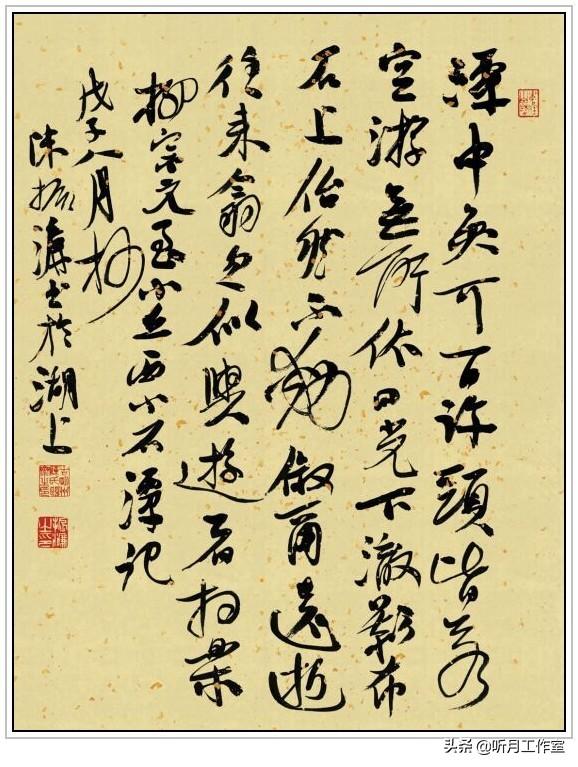 潭中魚可百許頭皆若
空游無所依日光下澈影布
石上佁然不動俶爾遠逝
往來翕忽似與遊者相樂
柳宗元至小丘西小石潭記
戊子八月杪
陳振濂書於湖上
头条 @听月工作室